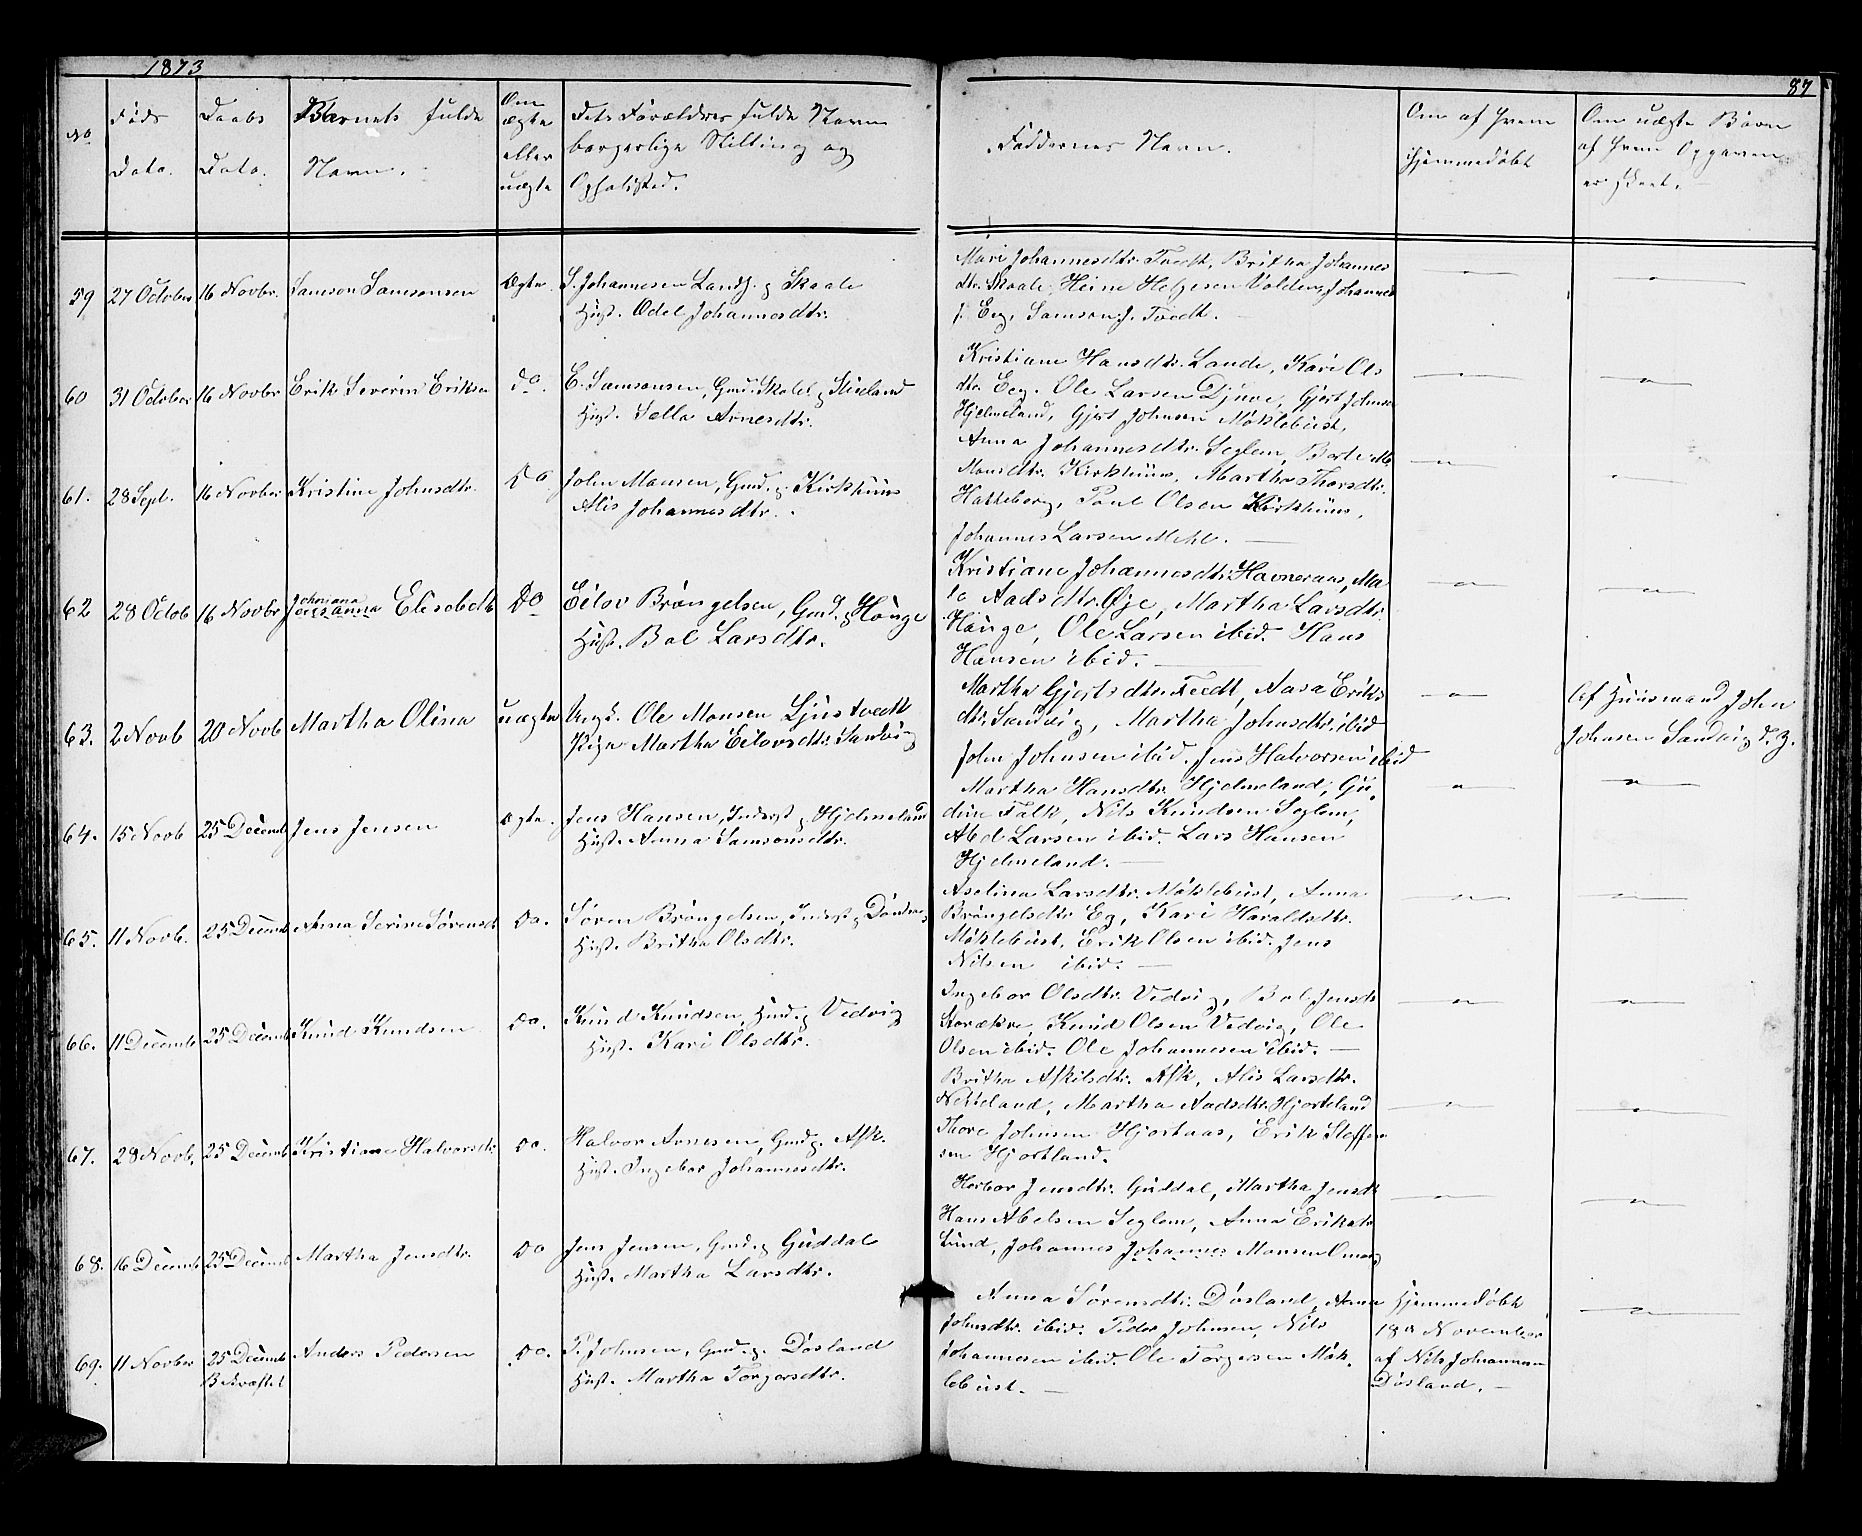 1873
87
No
Føds
Dato.
Daabs
Dato.
Barnets fulde
Navn.
Om
ægte
eller
uægte
Dets Forældres fulde Navn
borgerlige Stilling og
Opholdsted.
Faddernes Navn.
Om af hvem
hjemmedøbt
Om uægte Børn
af hvem Opgaven
er skeet.
59 27 October 16 Novbr. Samson Samsonsen Ægte. S. Johannesen Landh. p Skaale
Hust. Odel Johannesdtr.
Mari Johannesdtr. Tvedt, Britha Johannes
dtr. Skaale, Heine Helgesen Volden, Johannes
J. Eeg, Samson J. Tvedt.
60 31 October 16 Novbr Erik Severin Eriksen do. E. Samsonsen, Gmd. p Skieland
Hust. Sella Arnesdtr.
Kristiane Hansdtr. Lande, Kari Ols
dtr. Eeg. Ole Larsen Djuve, Gjert Johnsen
Hjelmeland, Gjert Johnsen Møklebust.
61. 28 Sept. 16 Novbr Kristine Johnsdtr. Do John Monsen, Gmd. p. Kirkhuus
Alis Johannesdtr.
Anna Johannesdtr. Seglem,
Monsdtr. Kirkhuus, Martha Thorsdtr.
Hatteberg, Poul Olsen Kirkhuus,
Johannes Larsen Mehl.
62 28 Octob 16 Novbr Johanna Elisabeth Do Eilov Brøngelsen, Gmd. p Houge
Hust. Bol Larsdtr.
Kristiane Johannesdtr. Havneraas,
Aadsdtr. Øje, Martha Larsdtr.
Houge, Ole Larsen ibid. Hans
Hansen ibid.
63. 2 Novb 20 Novb Martha Olina uægte Ungk. Ole Monsen Ljustvedt
Pige Martha Eilovsdtr. Sandvig
Martha Gjertsdtr. Tvedt, Aasa Eriks
dtr. Sandvig, Martha Johnsdtr. ibid
John Johnsen ibid. Jens Halvorsen ibid
Af Huusmand John
Johnsen Sandvig d. 3.
64. 15 Novb 25 Decemb Jens Jensen ægte. Jens Hansen, Inderst p Hjelmeland
Hust. Anna Samsonsdtr.
Martha Hansdtr. Hjelmeland, Gu-
dine Falk, Nils Knudsen Seglem,
Abel Larsen ibid. Lars Hansen
Hjelmeland.
65. 11 Novb. 25 Decemb Anna Serine Sørensdt Do. Søren Brøngelsen, Inderst p
Hust. Britha Olsdtr.
Aselina Larsdtr. Møklebust, Anna
Brøngelsdtr. Eg, Kari Haraldsdtr.
Møklebust, Erik Olsen ibid. Jens
Nilsen ibid.
66. 11 Decemb 25 Decemb Knud Knudsen Do. Knud Knudsen, Huusd. p Vedvig
Hust. Kari Olsdtr.
Ingebor Olsdtr. Vedvig, Bol Jensdt
Storækre, Knud Olsen Vedvig, Ole
Olsen ibid. Ole Johannesen ibid.
67. 28 Novb. 25 Decemb Kristiane Halvorsdtr Do. Halvor Arnesen, Gmd. p. Ask.
Hust. Ingebor Johannesdtr.
Britha Askilsdtr. Ask, Alis Larsdtr.
Nesteland, Martha Aadsdtr. Hjorteland
Thore Johnsen Hjortaas, Erik Steffen
sen Hjortland.
68. 16 Decemb 25 Decemb Martha Jensdtr. Do Jens Jensen, Gmd. p Guddal
Hust. Martha Larsdtr.
Herbor Jensdtr. Guddal, Martha Jensdt
Hans Abelsen Seglem, Anna Eriksdtr
Lund, Johannes Johannes Monsen
69. 11 Novbr 25 Decemb
Bekræftet Anders Pedersen Do. P. Johnsen, Gmd. p. Døsland
Hust. Martha Torgersdtr.
Anna Sørensdtr. Døsland, Anna
Johnsdtr. ibid. Peder Johnsen, Nils
Johannesen ibid. Ole Torgersen Møk-
lebust.
Hjemmedøbt
18de November
af Nils Johannesen
Døsland.